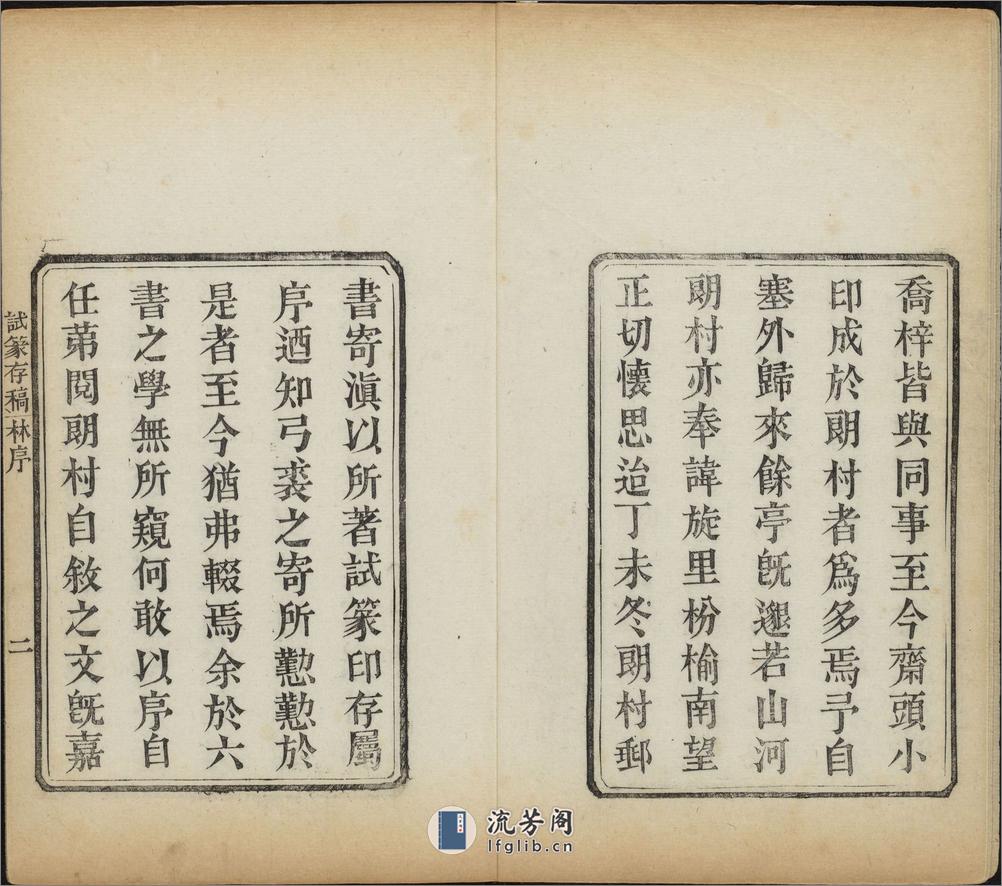 喬梓皆與同事至今齋頭小
印成於朗村者爲多焉予自
塞外歸來餘亭旣邈若山河
朗村亦奉諱旋里枌榆南望
正切懷思迨丁未冬朗村郵
書寄滇以所著試篆印存屬
序迺知弓裘之寄所懃懃於
是者至今猶弗輟焉余於六
書之學無所窺何敢以序自
任苐閱朗村自敘之文旣嘉
試篆存稿 林序 二
流芳阁
lfglib.cn